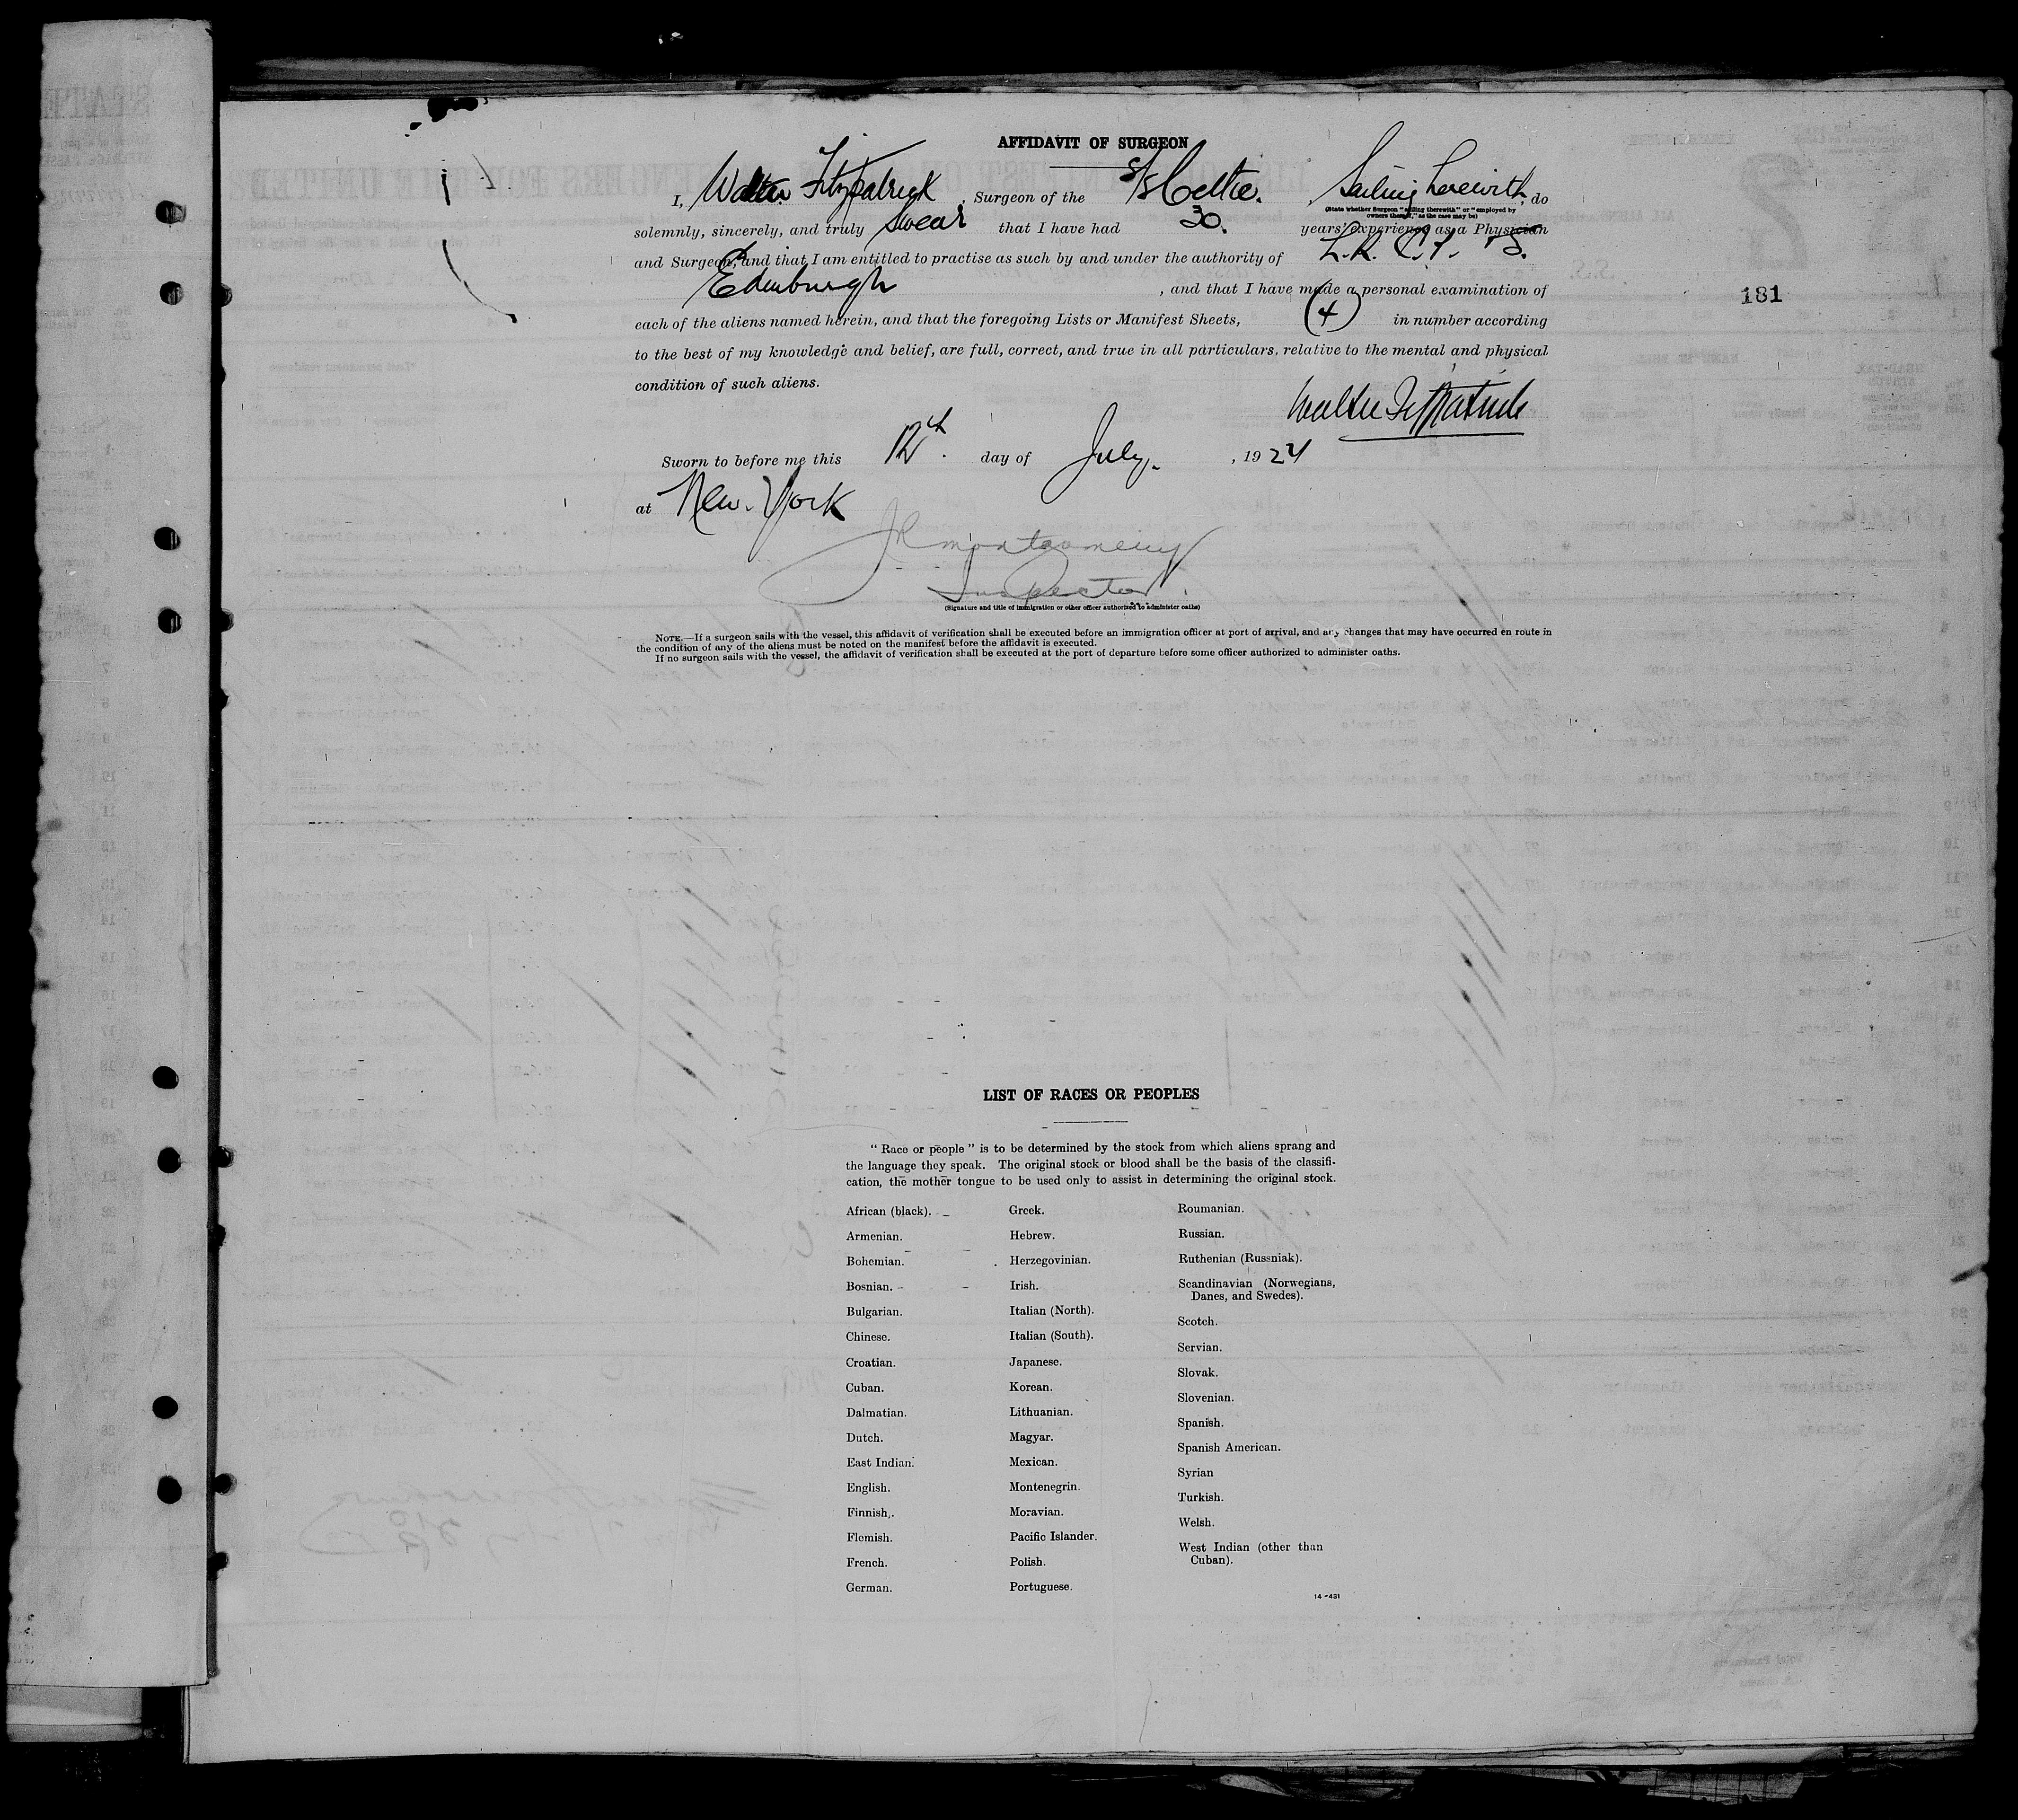 AFFIDAVIT OF SURGEON
I, Walter Fitzpatrick, Surgeon of the S/S Celtic. , Sailing herewith, do
(State whether Surgeon "sailing therewith" or "employed by
owners thereof," as the case may be)
solemnly, sincerely, and truly swear that I have had 30. years' experience as a Physician
and Surgeon, and that I am entitled to practise as such by and under the authority of L.R.C.P. & S.
Edinburgh , and that I have made a personal examination of
181
each of the aliens named herein, and that the foregoing Lists or Manifest Sheets, (4) in number according
to the best of my knowledge and belief, are full, correct, and true in all particulars, relative to the mental and physical
condition of such aliens.
Walter Fitzpatrick
Sworn to before me this 12th. day of July. , 1924
at New. York
JR Montgomery
Inspector.
(Signature and title of immigration or other officer authorized to administer oaths)
NOTE.—If a surgeon sails with the vessel, this affidavit of verification shall be executed before an immigration officer at port of arrival, and any changes that may have occurred en route in
the condition of any of the aliens must be noted on the manifest before the affidavit is executed.
If no surgeon sails with the vessel, the affidavit of verification shall be executed at the port of departure before some officer authorized to administer oaths.
LIST OF RACES OR PEOPLES
"Race or people" is to be determined by the stock from which aliens sprang and
the language they speak. The original stock or blood shall be the basis of the classifi-
cation, the mother tongue to be used only to assist in determining the original stock.
African (black).
Armenian.
Bohemian.
Bosnian.
Bulgarian.
Chinese.
Croatian.
Cuban.
Dalmatian.
Dutch.
East Indian.
English.
Finnish.
Flemish.
French.
German.
Greek.
Hebrew.
Herzegovinian.
Irish.
Italian (North).
Italian (South).
Japanese.
Korean.
Lithuanian.
Magyar.
Mexican.
Montenegrin.
Moravian.
Pacific Islander.
Polish.
Portuguese.
Roumanian.
Russian.
Ruthenian (Russniak).
Scandinavian (Norwegians,
Danes, and Swedes).
Scotch.
Servian.
Slovak.
Slovenian.
Spanish.
Spanish American.
Syrian
Turkish.
Welsh.
West Indian (other than
Cuban).
14—431